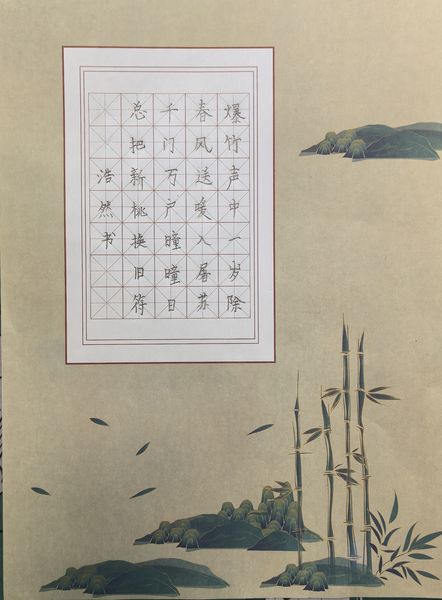 爆竹声中一岁除
春风送暖入屠苏
千门万户瞳瞳日
总把新桃换旧符
浩然书